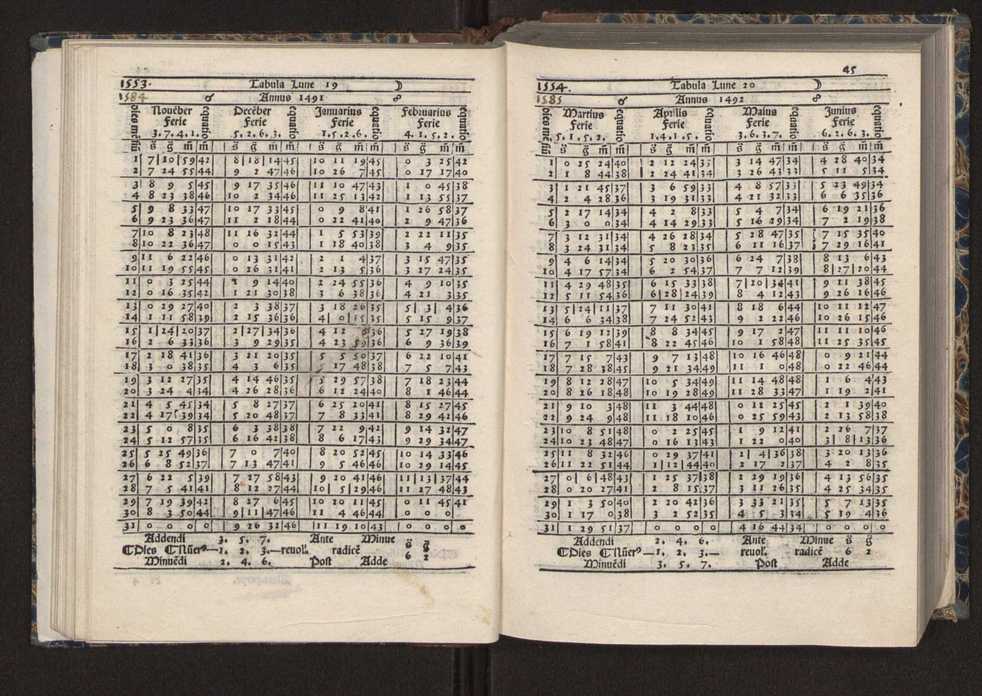 1553. Tabula Lune 19
1584 Annus 1491
Nouẽber Decẽber Januarius Februarius
Ferie Ferie Ferie Ferie
3. 7. 4. 1. 5. 2. 6. 3. 1. 5. 2. 6. 4. 1. 5. 2.
s g m m s g m m s g m m s g m m
1 7 10 59 42 8 18 14 45 10 11 19 45 0 3 25 42
2 7 24 55 44 9 2 47 46 10 26 7 45 0 17 17 40
3 8 9 5 45 9 17 35 46 11 10 47 43 1 0 45 38
4 8 23 38 46 10 2 34 46 11 25 13 42 1 13 55 37
5 9 8 33 47 10 17 33 45 0 9 8 41 1 26 58 37
6 9 23 36 47 11 2 18 44 0 22 41 40 2 9 47 36
7 10 8 23 48 11 16 32 44 1 5 53 39 2 22 21 35
8 10 22 36 47 0 0 15 43 1 18 40 38 3 4 9 35
9 11 6 22 46 0 13 31 42 2 1 4 37 3 15 47 35
10 11 19 55 45 0 26 31 41 2 13 5 36 3 27 24 35
11 0 3 25 44 1 9 14 40 2 24 55 36 4 9 10 35
12 0 16 35 42 1 21 30 38 3 6 38 36 4 21 3 35
13 0 29 27 40 2 3 38 37 3 18 26 35 5 3 4 36
14 1 11 58 39 2 15 36 36 4 0 15 35 5 15 9 37
15 1 24 20 37 2 27 34 36 4 12 8 36 5 27 19 38
16 2 6 33 36 3 9 29 35 4 23 59 36 6 9 36 39
17 2 18 41 36 3 21 20 35 5 5 50 37 6 22 10 41
18 3 0 38 35 4 3 6 35 17 48 38 7 5 7 43
19 3 12 27 35 4 14 46 35 5 29 57 38 7 18 23 44
20 3 24 4 34 4 26 28 36 6 12 24 40 8 1 46 44
21 4 5 45 34 5 8 27 37 6 25 20 41 8 15 27 45
22 4 17 39 34 5 20 48 37 7 8 33 41 8 29 42 46
23 5 0 8 35 6 3 38 38 7 22 9 42 9 14 32 47
24 5 12 57 35 6 16 42 38 8 6 17 43 9 29 34 47
25 5 25 49 36 7 0 7 40 8 20 52 45 10 14 33 46
26 6 8 52 37 7 13 47 41 9 5 46 46 10 29 14 45
27 6 22 5 39 7 27 58 43 9 20 41 46 11 13 37 44
28 7 5 41 41 8 12 27 44 10 5 29 46 11 27 48 43
29 7 19 39 42 8 27 6 45 10 20 11 45 0 11 45 41
30 8 3 50 44 9 11 47 46 11 4 46 44 0 0 0
31 0 0 0 0 9 26 32 46 11 19 10 43 0 0 0 0
Addendi 3. 5. 7. Ante Minue g g
Dies 1. 2. 3. reuol. radicẽ 8 8
Minuẽdi 2. 4. 6. Post Adde 6 2
45
1554. Tabula Lune 20
1585 Annus 1492
Martius Aprilis Maius Junius
Ferie Ferie Ferie Ferie
5. 1. 5. 2. 1. 4. 1. 5. 3. 6. 3. 7. 6. 2. 6. 3.
s g m m s g m m s g m m s g m m
1 0 25 24 40 2 12 24 35 3 14 47 34 4 28 40 34
2 1 8 44 38 2 24 41 34 3 26 43 33 5 11 5 34
3 1 21 45 37 3 6 59 33 4 8 57 33 5 23 49 34
4 2 4 28 36 3 19 31 33 4 21 32 33 6 6 35 36
5 2 17 14 34 4 2 8 33 5 4 7 34 6 19 21 36
6 3 0 0 34 4 14 29 33 5 16 29 34 7 2 19 38
7 3 12 31 34 4 26 28 34 5 28 47 35 7 15 35 40
8 3 24 31 34 5 8 23 35 6 11 16 37 7 29 16 41
9 4 6 14 34 5 20 30 36 6 24 7 38 8 13 6 43
10 4 17 57 34 6 2 54 37 7 7 12 39 8 27 10 44
11 4 29 48 35 6 15 33 38 7 20 34 41 9 11 38 45
12 5 11 54 36 6 28 24 39 8 4 12 43 9 26 16 46
13 5 24 11 37 7 11 30 41 8 18 6 44 10 11 12 47
14 6 6 34 38 7 24 52 43 9 2 22 46 10 26 15 46
15 6 19 12 39 8 8 34 45 9 17 2 47 11 11 10 46
16 7 1 58 41 8 22 45 46 10 1 58 48 11 25 35 45
17 7 15 7 43 9 7 13 48 10 16 46 48 0 9 21 44
18 7 28 38 45 9 21 34 49 11 1 0 48 0 22 46 44
19 8 12 28 47 10 5 34 49 11 14 48 48 1 6 4 43
20 8 26 18 48 10 19 28 49 11 28 33 47 1 19 2 41
21 9 10 3 48 11 3 44 48 0 12 25 45 2 1 39 40
22 9 24 9 48 11 18 10 46 0 25 59 43 2 13 58 38
23 10 8 51 48 0 2 25 45 1 9 12 41 2 26 7 37
24 10 23 48 47 0 16 13 43 1 22 0 40 3 8 13 36
25 11 8 32 46 0 29 37 41 2 4 36 38 3 20 13 36
26 11 22 51 44 1 12 44 40 2 17 2 37 4 2 8 35
27 0 6 48 43 1 25 37 38 2 29 19 36 4 13 56 35
28 0 20 27 41 2 8 15 37 3 11 26 35 4 25 34 35
29 1 3 50 40 2 20 42 36 3 23 21 35 5 7 13 35
30 1 17 0 38 3 2 52 35 4 5 3 34 5 19 4 36
31 1 29 51 37 0 0 0 0 4 16 44 34 0 0 0 0
Addendi 2. 4. 6. Ante Minue g g
Dies 1. 2. 3. reuol. radicẽ 6 2
Minuẽdi 3. 5. 7. Post Adde